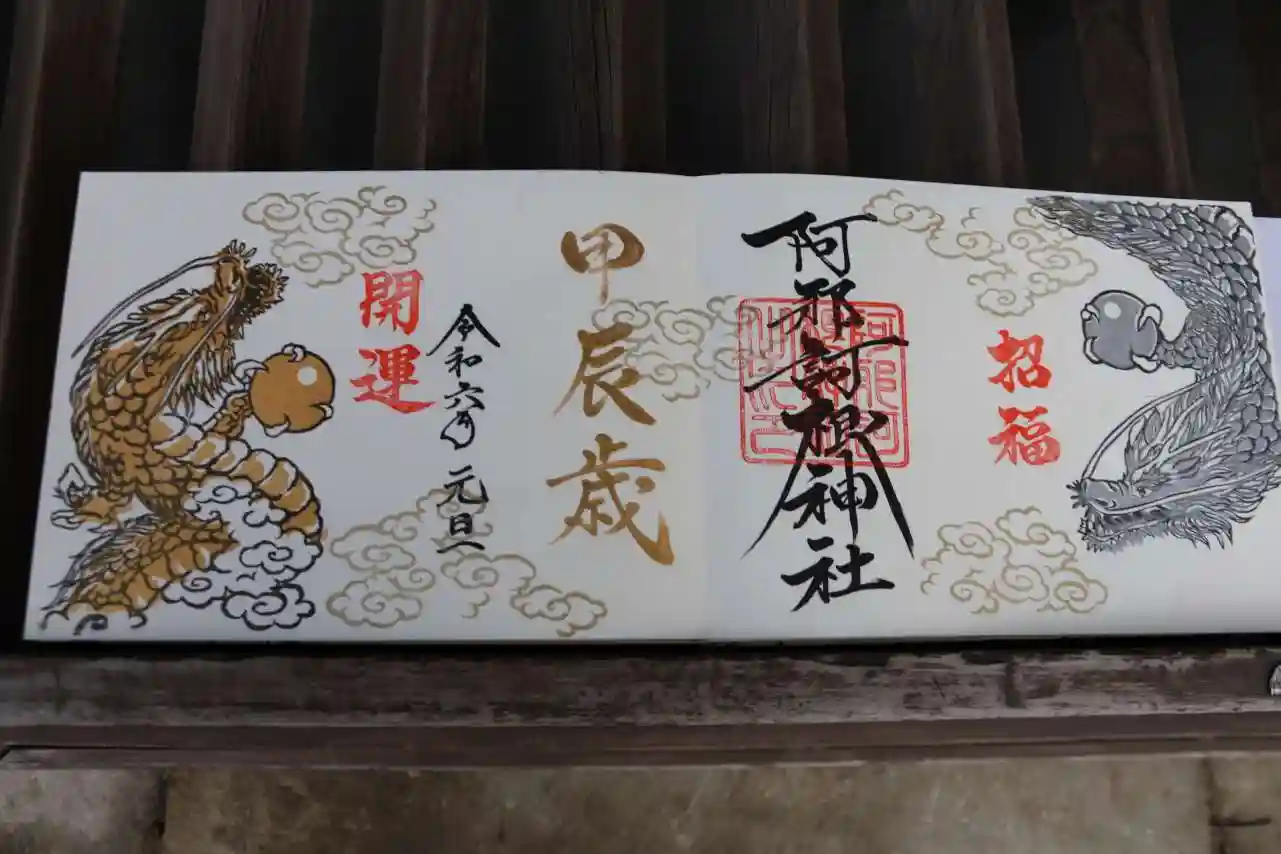 招福
阿邪訶根神社
甲辰歳
令和六年 元旦
開運